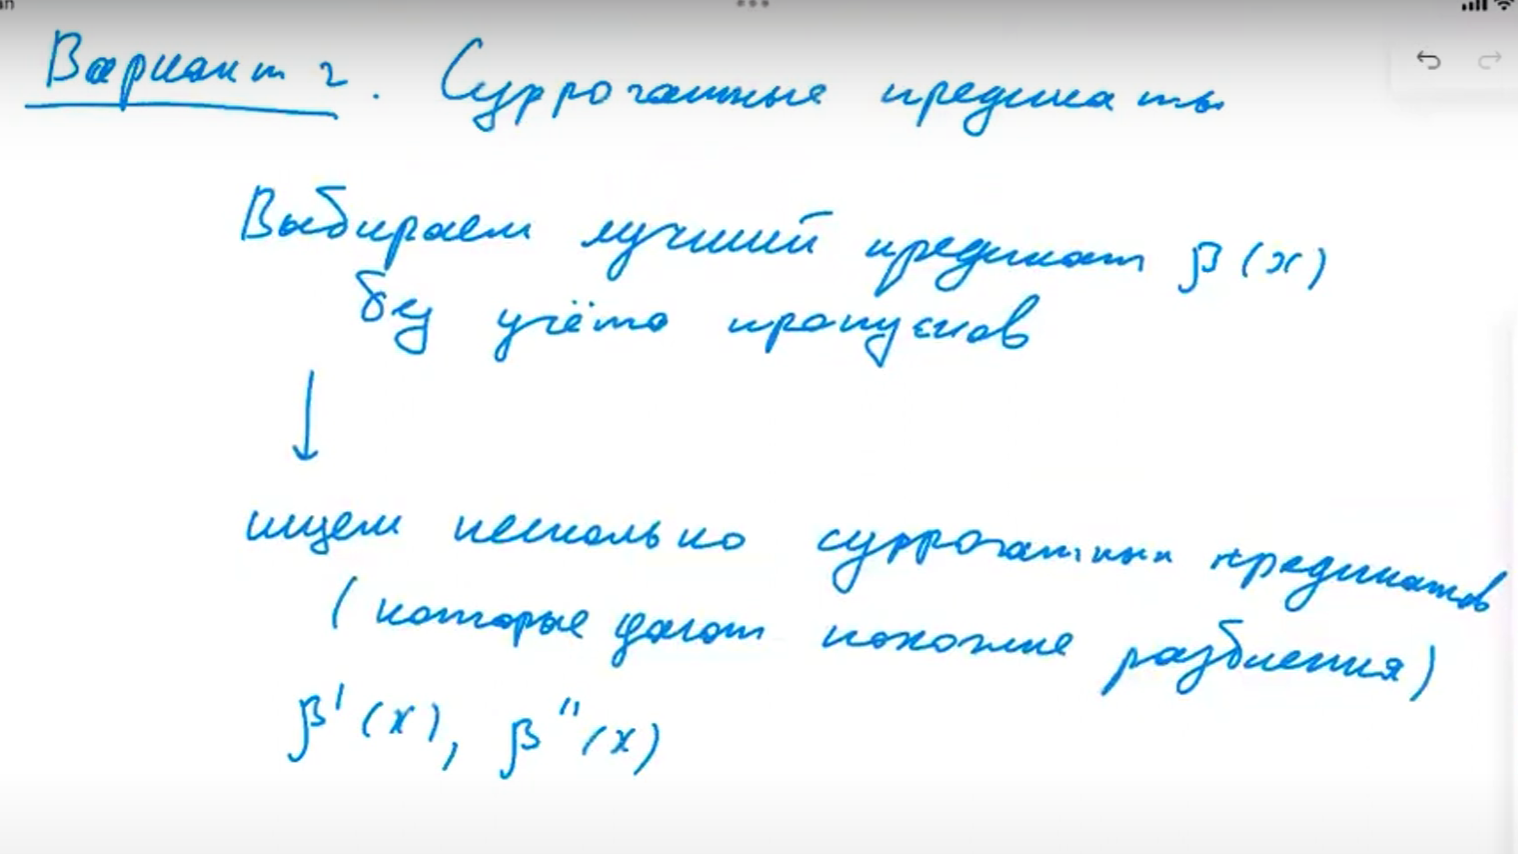 an
Вариант 2. Суррогатные предикаты
Выбираем лучший предикат β(x)
без учёта пропусков
ищем несколько суррогатных предикатов
(которые дают похожие разбиения)
β'(x), β''(x)